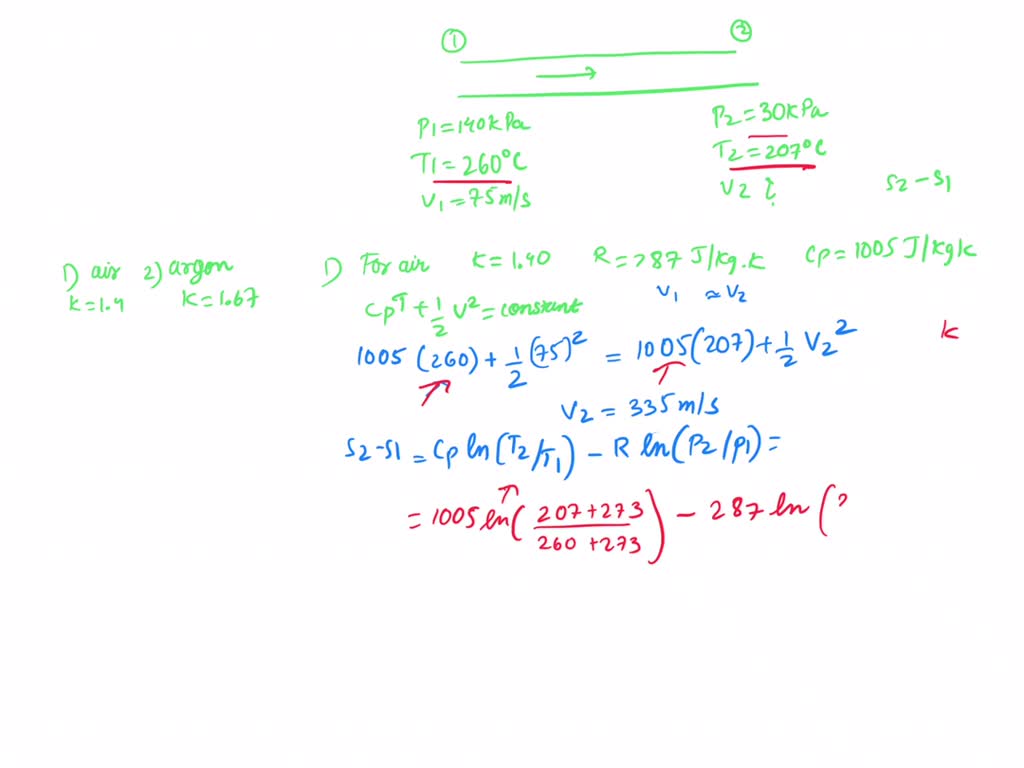 ① ②
→
P1=140kPa P2=30kPa
T1=260°C T2=207°C
V1=75m/s V2 ? S2-S1
1) air 2) argon 1) For air K=1.40 R=287 J/kg.K Cp=1005 J/kgK
K=1.4 K=1.67
CpT+1/2 V²=constant V1 ≈ V2
1005 (260)+1/2(75)² = 1005(207)+1/2 V2² K
V2 = 335m/s
S2-S1 = Cp ln(T2/T1) - R ln(P2/P1) =
= 1005 ln(207+273/260+273) - 287 ln (